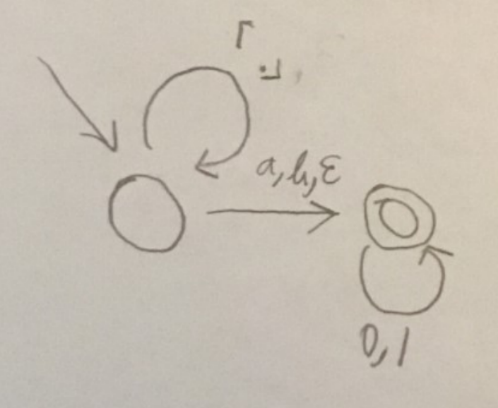 a,b,ε
0,1